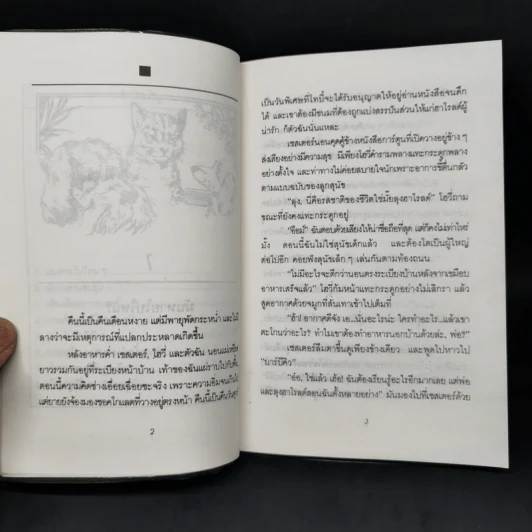 คืนนี้เป็นคืนเดือนหงาย แต่มีพายุพัดกระหน่ำ และไม่มี
ลางว่าจะมีเหตุการณ์ที่แปลกประหลาดเกิดขึ้น
หลังอาหารค่ำ เชสเตอร์, โฮวี่ และตัวฉัน นอนแผ่เหยียด
ยาวรวมกันอยู่ที่ระเบียงหน้าบ้าน เท้าของฉันแผ่ราบไปกับพื้น
ตอนนี้ความคิดช่างเอื่อยเฉื่อยซะจริง เพราะความอิ่มจนเกินไป
แต่ยายยังจ้องมองชอคโกแลตที่วางอยู่ตรงหน้า คืนนี้เป็นคืนวันศุกร์
2
เป็นวันพิเศษที่โทบี้จะได้รับอนุญาตให้อยู่อ่านหนังสือจนดึก
ได้ และเขาต้องมีขนมที่ต้องถูกแบ่งสรรปันส่วนให้แก่ฮาโรลด์ผู้
น่ารัก ก็ตัวฉันนั่นแหละ
เชสเตอร์นอนคุดคู้ข้างหนังสือการ์ตูนที่เปิดวางอยู่ข้าง ๆ
ส่งเสียงอย่างมีความสุข มีเพียงโฮวี่คำรามพลางแทะกระดูกพลาง
อย่างตั้งใจ และท่าทางไม่ค่อยสบายใจนักเพราะอาการขี้ตื่นกลัว
ตามแบบฉบับของลูกสุนัข
"ลุง, นี่คือรสชาติของชีวิตใช่มั้ยลุงฮาโรลด์" โฮวี่ถาม
ขณะที่ยังคงแทะกระดูกอยู่
"อืมม์" ฉันตอบด้วยเสียงให้น่าเชื่อถือที่สุด แต่ก็คงไม่เท่าไหร่
มั้ง ตอนนี้ฉันไม่ใช่สุนัขเด็กแล้ว และต้องโตเป็นผู้ใหญ่
ต่อไปอีก คอยฟังสุนัขเล็ก ๆ เล่นกันตามท้องถนน
"ไม่มีอะไรจะดีกว่านอนตรงระเบียงบ้านหลังจากเขมือบ
อาหารเสร็จแล้ว" โฮวี่ก้มหน้าแทะกระดูกอย่างไม่เลิกรา แล้ว
สูดอากาศด้วยจมูกที่สั้นเทาเข้าไปเต็มที่
"ฮ้า! อากาศดีจัง เอ...นั่นอะไรน่ะ ใครทำอะไร...แล้วเขา
ตะโกนว่าอะไร? ทำไมเขาต้องทำอาหารนอกบ้านด้วยล่ะ, พ่อ?"
เชสเตอร์ลืมตาขึ้นดูเพียงข้างเดียว และพูดไปหาวไป
"บาร์บีคิว"
"อ๋อ, ใช่แล้ว เฮ้อ! ฉันต้องเรียนรู้อะไรอีกมากเลย แต่พ่อ
และลุงฮาโรลด์สอนฉันตั้งหลายอย่าง" มันมองไปที่เชสเตอร์ด้วย
3